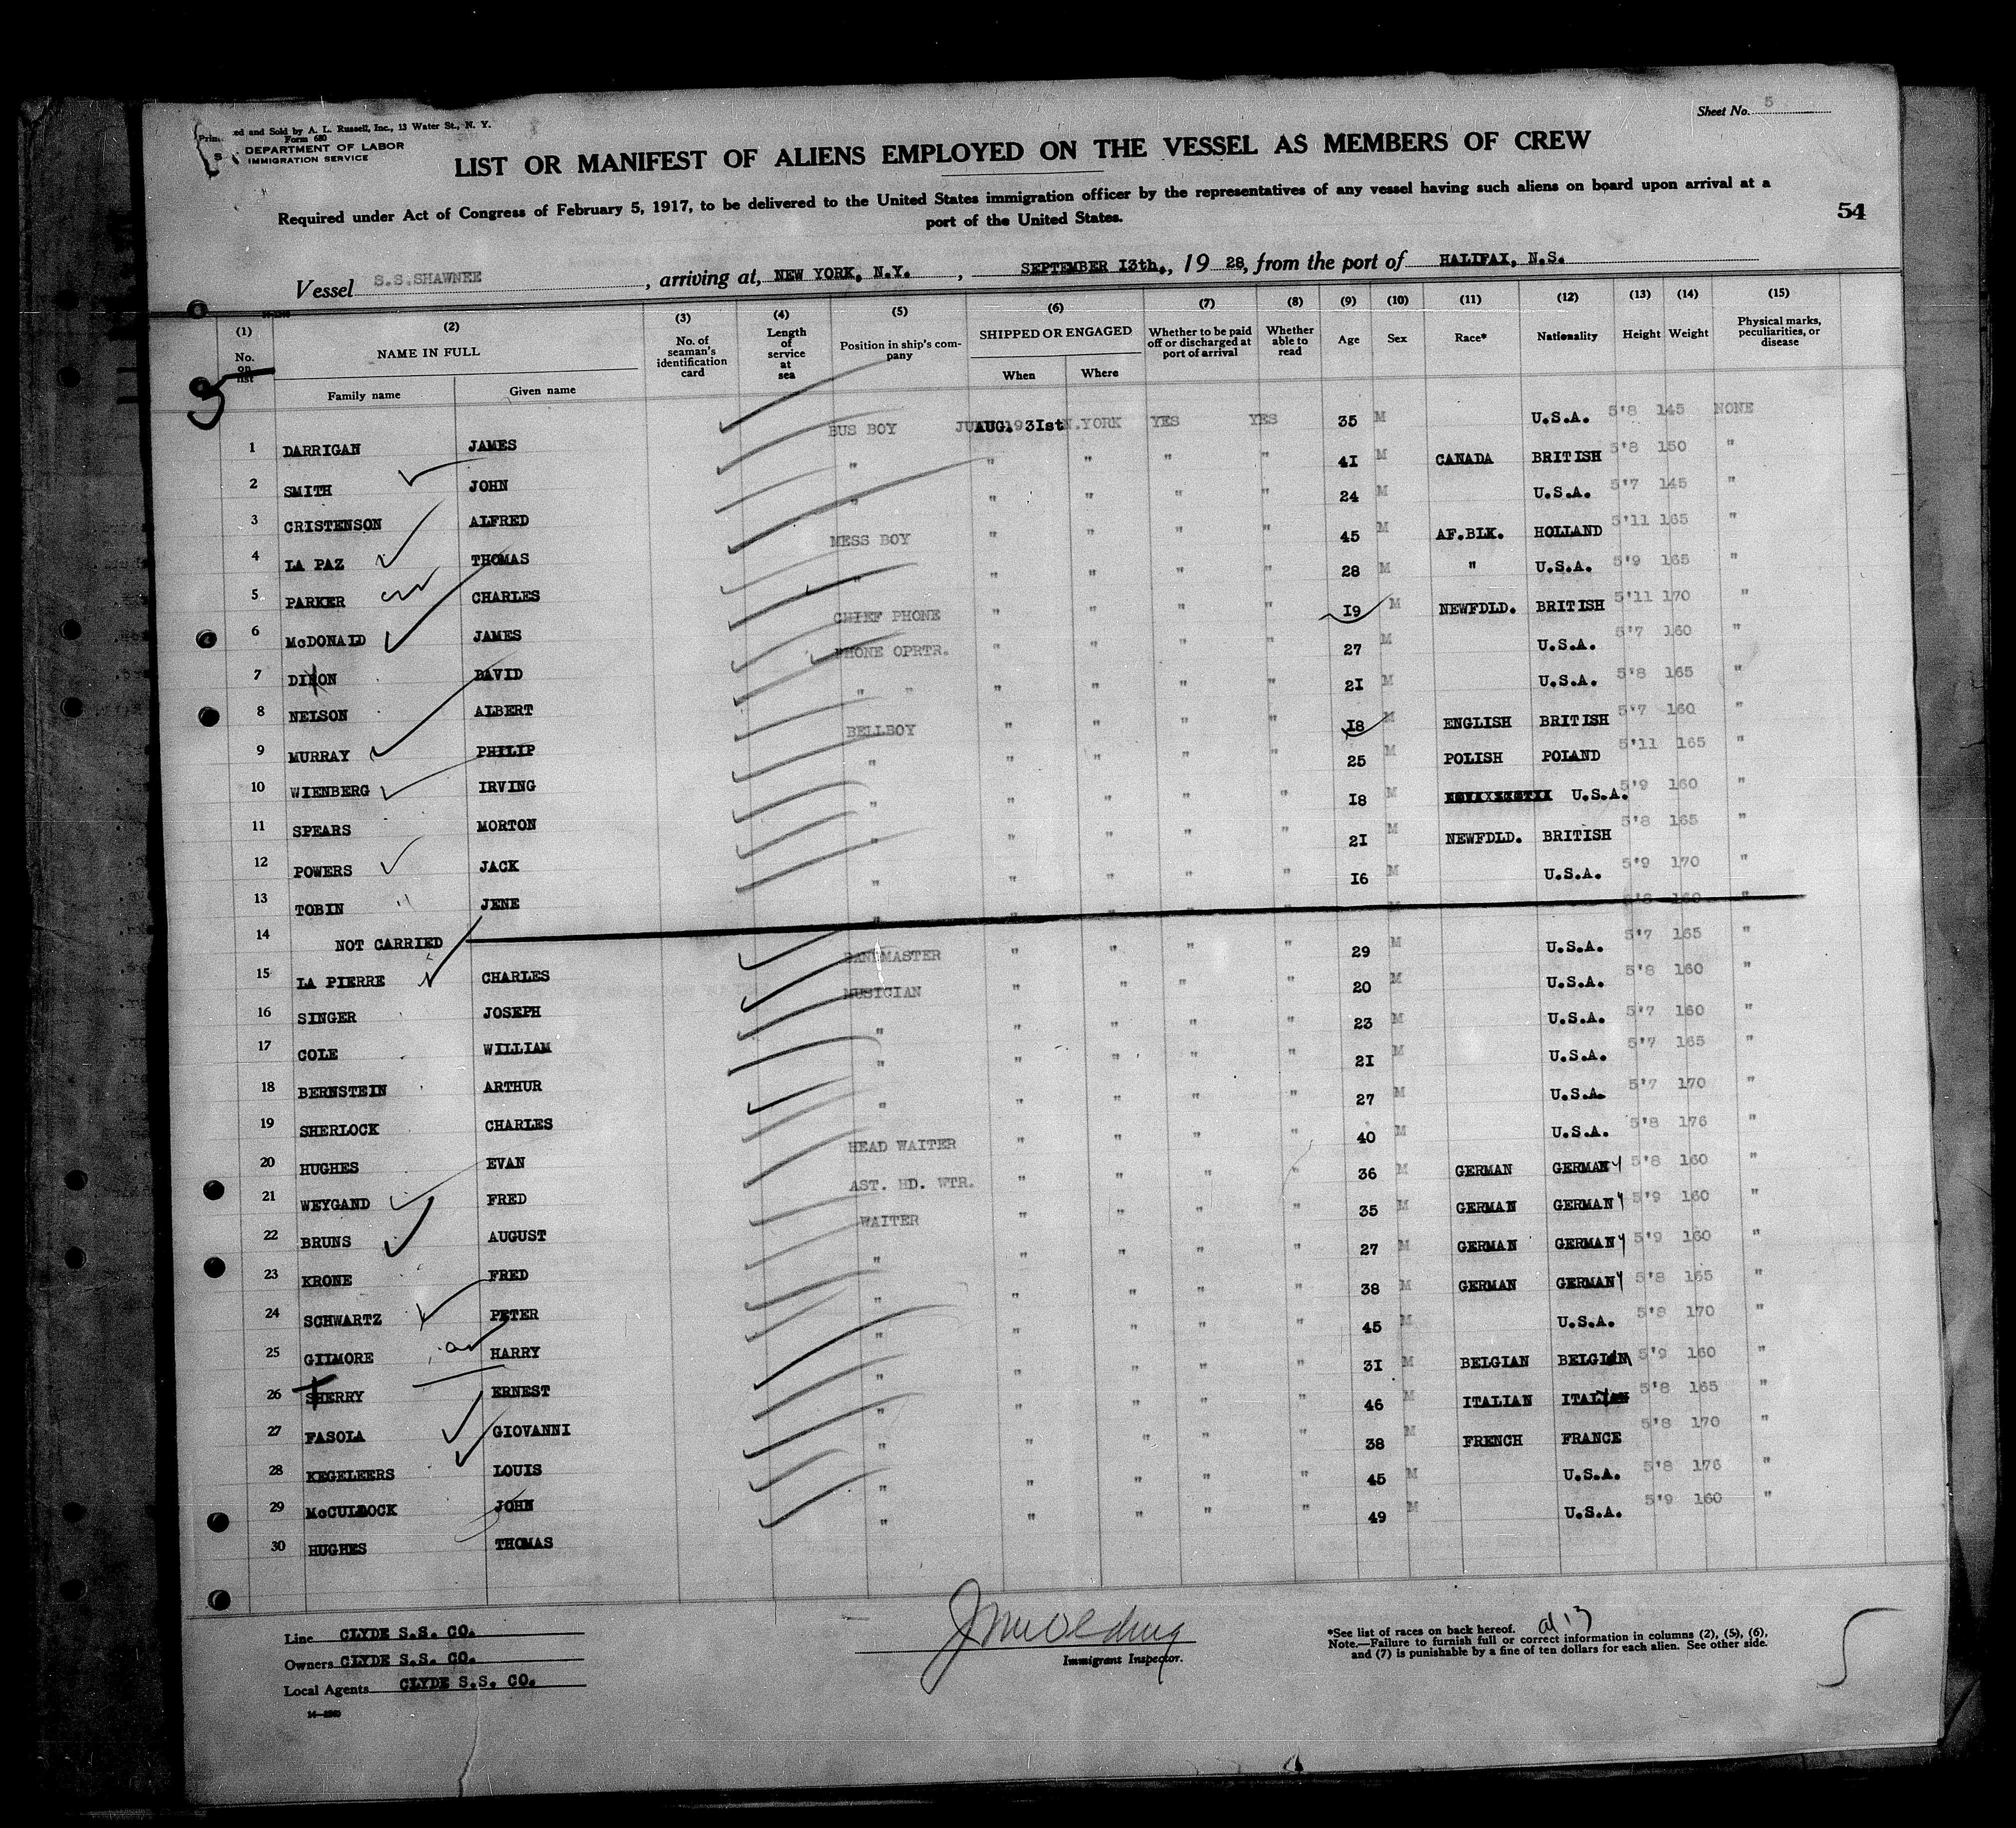 Sheet No. 5
ed and Sold by A. L. Russell, Inc., 13 Water St., N. Y.
Form 680
DEPARTMENT OF LABOR
IMMIGRATION SERVICE
LIST OR MANIFEST OF ALIENS EMPLOYED ON THE VESSEL AS MEMBERS OF CREW
Required under Act of Congress of February 5, 1917, to be delivered to the United States immigration officer by the representatives of any vessel having such aliens on board upon arrival at a
port of the United States.
54
Vessel S.S.SHAWNEE, arriving at, NEW YORK, N.Y., SEPTEMBER 13th., 19 28, from the port of HALIFAX, N.S.
(1) (2) (3) (4) (5) (6) (7) (8) (9) (10) (11) (12) (13) (14) (15)
No. on list NAME IN FULL No. of seaman's identification card Length of service at sea Position in ship's company SHIPPED OR ENGAGED Whether to be paid off or discharged at port of arrival Whether able to read Age Sex Race* Nationality Height Weight Physical marks, peculiarities, or disease
Family name Given name When Where
1 DARRIGAN JAMES BUS BOY AUG. 31st N.YORK YES YES 35 M U.S.A. 5'8 145 NONE
2 SMITH JOHN " " " " " 41 M CANADA BRITISH 5'8 150 "
3 CRISTENSON ALFRED " " " " " 24 M U.S.A. 5'7 145 "
4 LA PAZ THOMAS MESS BOY " " " " 45 M AF.BLK. HOLLAND 5'11 165 "
5 PARKER CHARLES " " " " " 28 M " U.S.A. 5'9 165 "
6 McDONALD JAMES CHIEF PHONE " " " " 19 M NEWFDLD. BRITISH 5'11 170 "
7 DIXON DAVID PHONE OPRTR. " " " " 27 M U.S.A. 5'7 160 "
8 NELSON ALBERT " " " " " " 21 M U.S.A. 5'8 165 "
9 MURRAY PHILIP BELLBOY " " " " 18 M ENGLISH BRITISH 5'7 160 "
10 WIENBERG IRVING " " " " " 25 M POLISH POLAND 5'11 165 "
11 SPEARS MORTON " " " " " 18 M U.S.A. 5'9 160 "
12 POWERS JACK " " " " " 21 M NEWFDLD. BRITISH 5'8 165 "
13 TOBIN JENE " " " " " 16 M U.S.A. 5'9 170 "
14 NOT CARRIED " " " " " M 5'8 160 "
15 LA PIERRE CHARLES BANDMASTER " " " " 29 M U.S.A. 5'7 165 "
16 SINGER JOSEPH MUSICIAN " " " " 20 M U.S.A. 5'8 160 "
17 COLE WILLIAM " " " " " 23 M U.S.A. 5'7 160 "
18 BERNSTEIN ARTHUR " " " " " 21 M U.S.A. 5'7 165 "
19 SHERLOCK CHARLES " " " " " 27 M U.S.A. 5'7 170 "
20 HUGHES EVAN HEAD WAITER " " " " 40 M U.S.A. 5'8 176 "
21 WEYGAND FRED AST. HD. WTR. " " " " 36 M GERMAN GERMANY 5'8 160 "
22 BRUNS AUGUST WAITER " " " " 35 M GERMAN GERMANY 5'9 160 "
23 KRONE FRED " " " " " 27 M GERMAN GERMANY 5'9 160 "
24 SCHWARTZ PETER " " " " " 38 M GERMAN GERMANY 5'8 165 "
25 GILMORE HARRY " " " " " 45 M U.S.A. 5'8 170 "
26 SHERRY ERNEST " " " " " 31 M BELGIAN 5'9 160 "
27 FASOLA GIOVANNI " " " " " 46 M ITALIAN ITALY 5'8 165 "
28 KEGELEERS LOUIS " " " " " 38 M FRENCH FRANCE 5'8 170 "
29 McCULLOCK JOHN " " " " " 45 M U.S.A. 5'8 176 "
30 HUGHES THOMAS " " " " " 49 M U.S.A. 5'9 160 "
Line CLYDE S.S. CO.
Owners CLYDE S.S. CO.
Local Agents CLYDE S.S. CO.
Immigrant Inspector.
*See list of races on back hereof.
Note.—Failure to furnish full or correct information in columns (2), (5), (6),
and (7) is punishable by a fine of ten dollars for each alien. See other side.